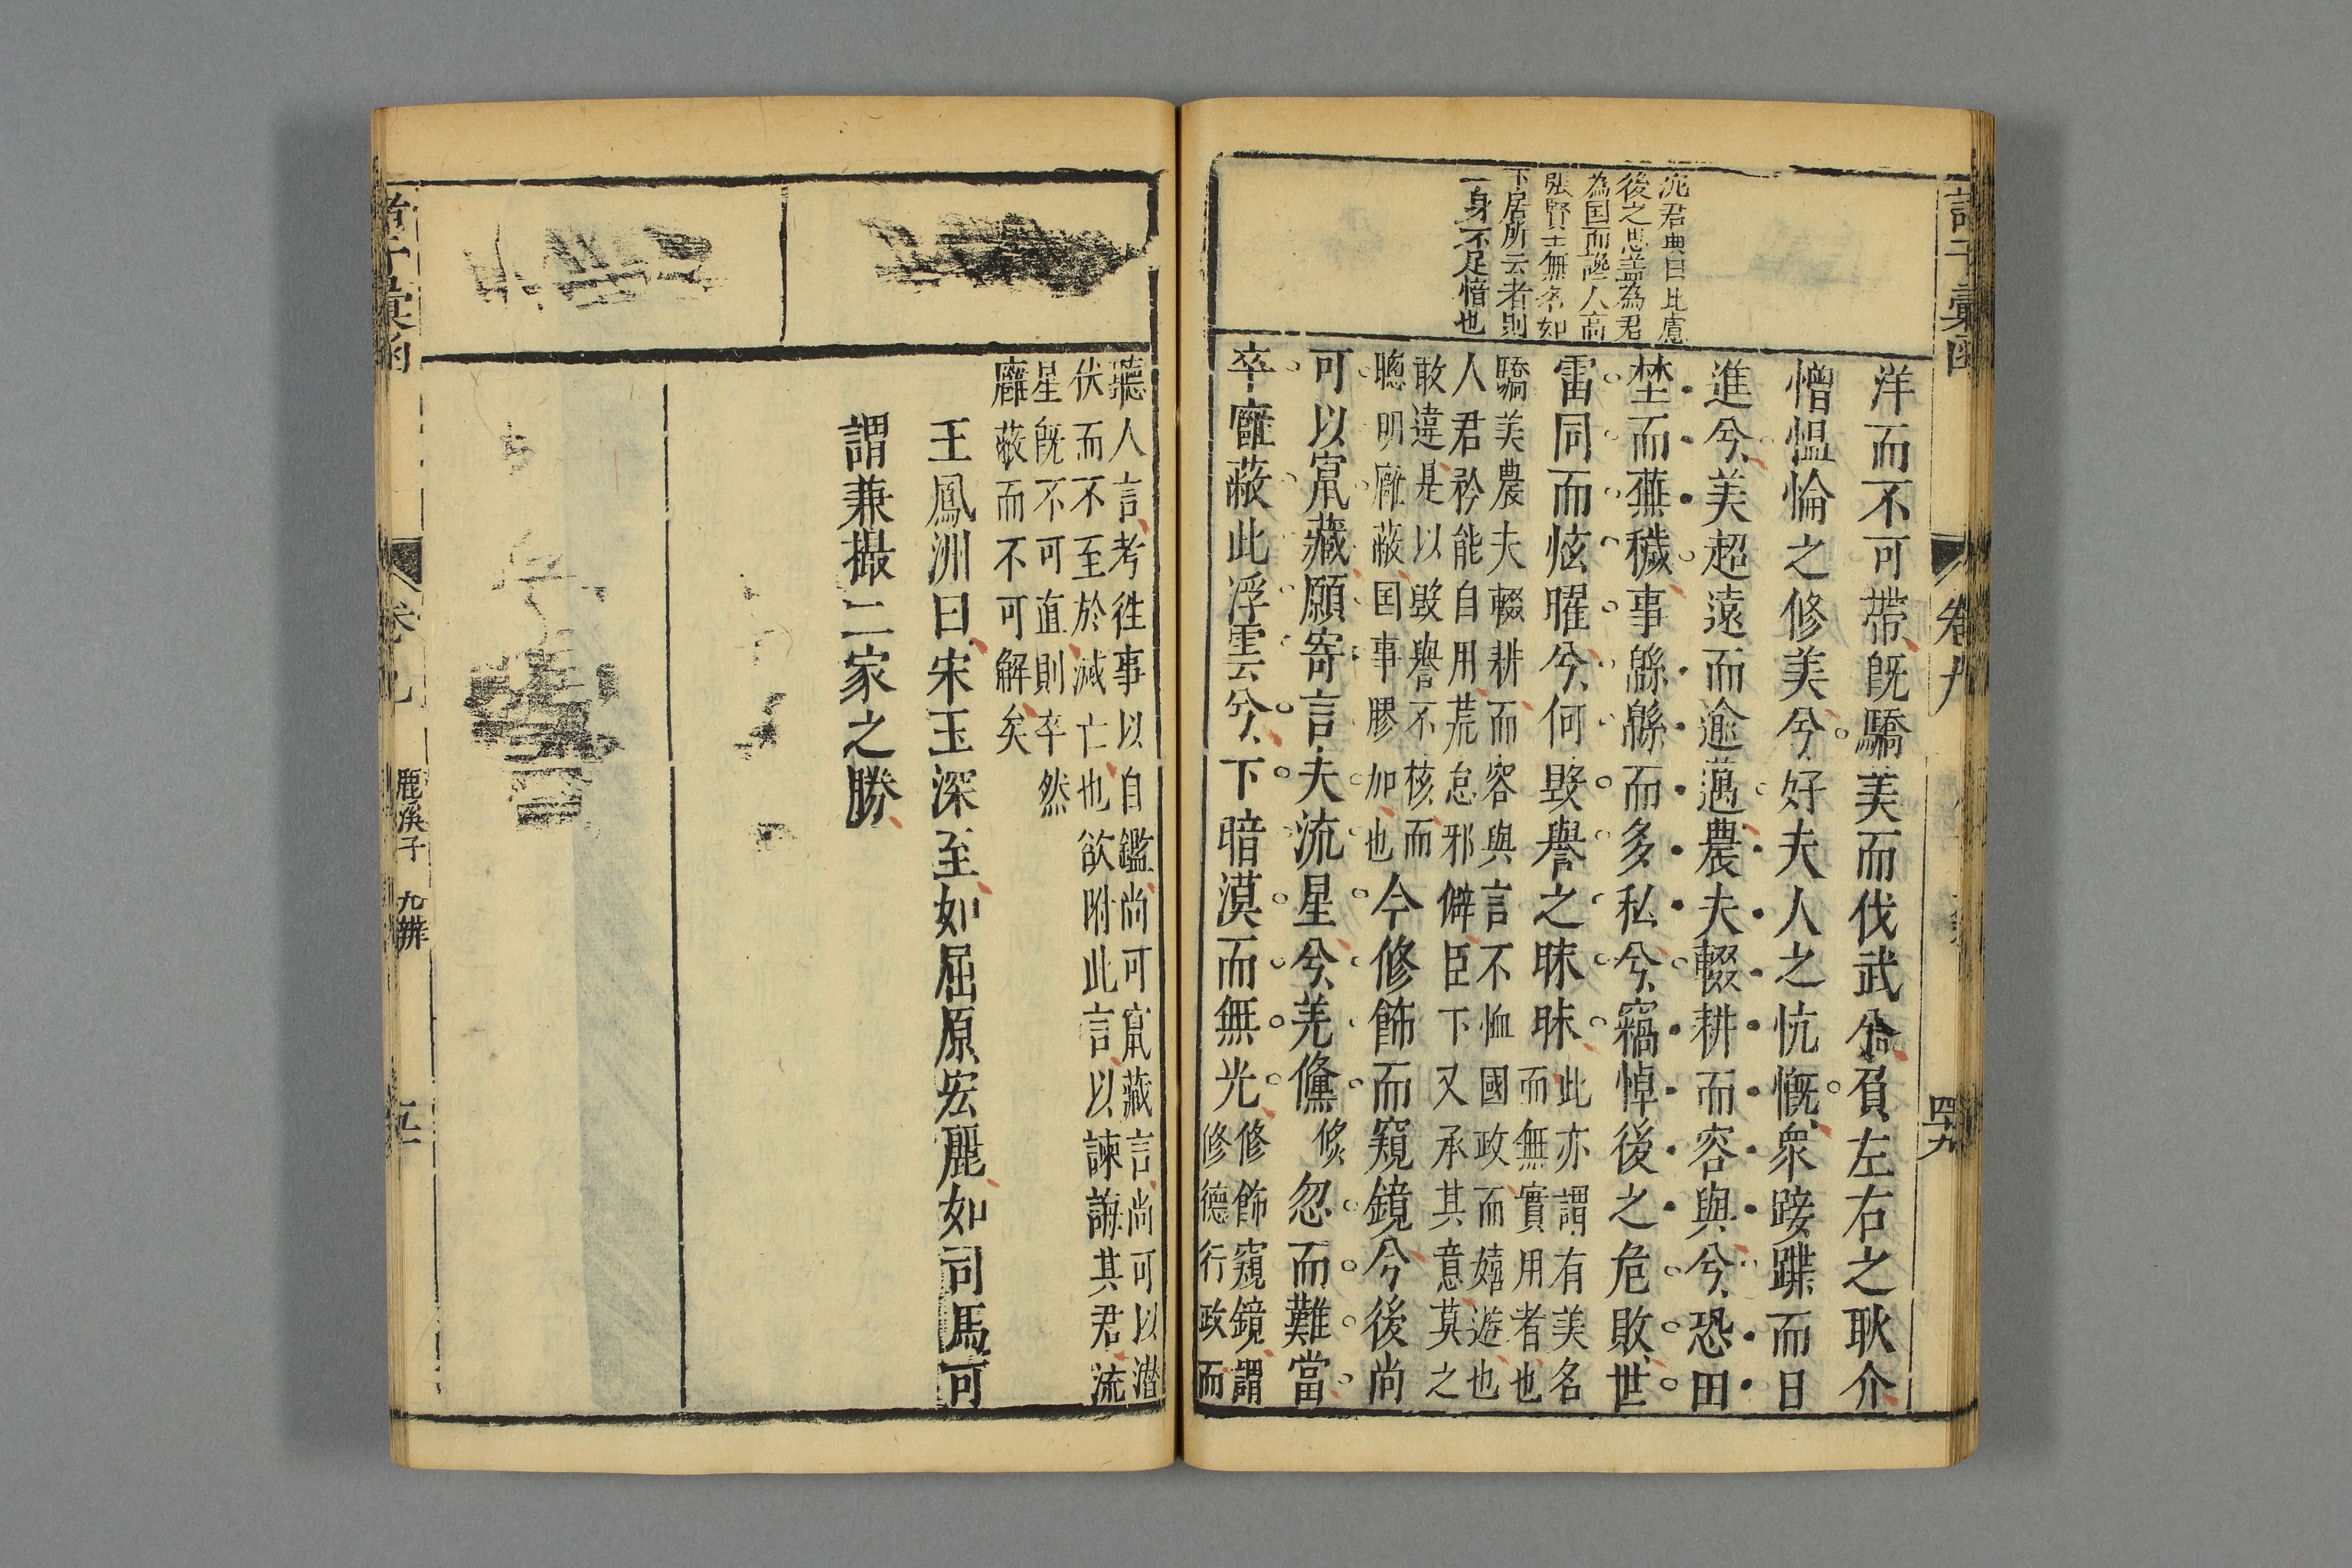 諸子彙函
卷九
四九
沈君典曰此慮
後之思盖為君
為国而讒人高
張賢士無名如
下居所云者則
一身不足惜也
洋而不可帶旣驕美而伐武兮負左右之耿介
憎愠惀之修美兮好夫人之忼慨衆踥蹀而日
進兮美超遠而逾邁農夫輟耕而容與兮恐田
埜而蕪穢事緜緜而多私兮竊悼後之危敗世
雷同而炫曜兮何毀譽之昧昧此亦謂有美名
而無實用者也
驕美農夫輟耕而容與言不恤國政而嬉遊也
人君矜能自用荒怠邪僻臣下又承其意莫之
敢違是以毀譽不核而
聰明廱蔽国事膠加也
今修飾而窺鏡兮後尚
可以竄藏願寄言夫流星兮羌儵倏忽而難當
卒廱蔽此浮雲兮下暗漠而無光修飾窺鏡謂
修德行政而
聽人言考徃事以自鑑尚可竄藏言尚可以潜
伏而不至於滅亡也欲附此言以諫誨其君流
星旣不可直則卒然
廱蔽而不可解矣
王鳳洲曰宋玉深至如屈原宏麗如司馬可
謂兼撮二家之勝
諸子彙函
卷九
鹿溪子 九辨
五十